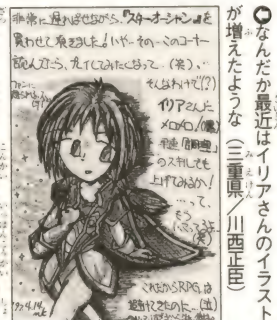 なんだか最近はイリアさんのイラスト
が増えたような（三重県／川西正臣）
非常に遅ればせながら、『スターオーシャン』を
買わせて頂きました！いや、その…このコーナー
読んでたら、
なって…（笑）。
そんなわけで(!?)
イリアさんに
メロメロ！
のスキルでも
上げてみるか！
…って、
もう
（笑）
これだからRPGは
避けてきたのに…（泣）
'97.4.14.